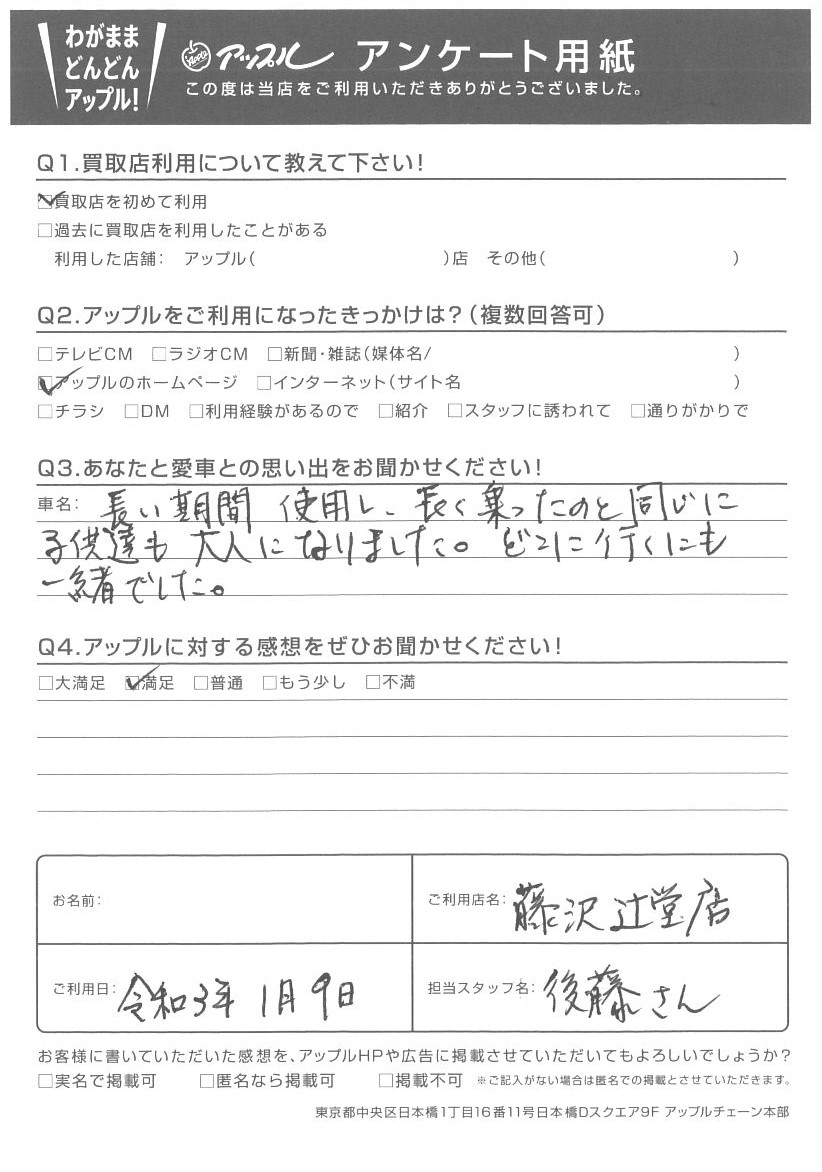 わがまま
どんどん
アップル!
Apple アップル アンケート用紙
この度は当店をご利用いただきありがとうございました。
Q1.買取店利用について教えて下さい!
☑買取店を初めて利用
□過去に買取店を利用したことがある
利用した店舗: アップル( )店 その他( )
Q2.アップルをご利用になったきっかけは?(複数回答可)
□テレビCM □ラジオCM □新聞・雑誌(媒体名/ )
☑アップルのホームページ □インターネット(サイト名 )
□チラシ □DM □利用経験があるので □紹介 □スタッフに誘われて □通りがかりで
Q3.あなたと愛車との思い出をお聞かせください!
車名: 長い期間 使用し、長く乗ったのと同じに
子供達も 大人になりました。どこに行くにも
一緒でした。
Q4.アップルに対する感想をぜひお聞かせください!
□大満足 ☑満足 □普通 □もう少し □不満
お名前:
ご利用店名: 藤沢辻堂店
ご利用日: 令和3年 1月9日
担当スタッフ名: 後藤さん
お客様に書いていただいた感想を、アップルHPや広告に掲載させていただいてもよろしいでしょうか?
□実名で掲載可 □匿名なら掲載可 □掲載不可 ※ご記入がない場合は匿名での掲載とさせていただきます。
東京都中央区日本橋1丁目16番11号日本橋Dスクエア9F アップルチェーン本部